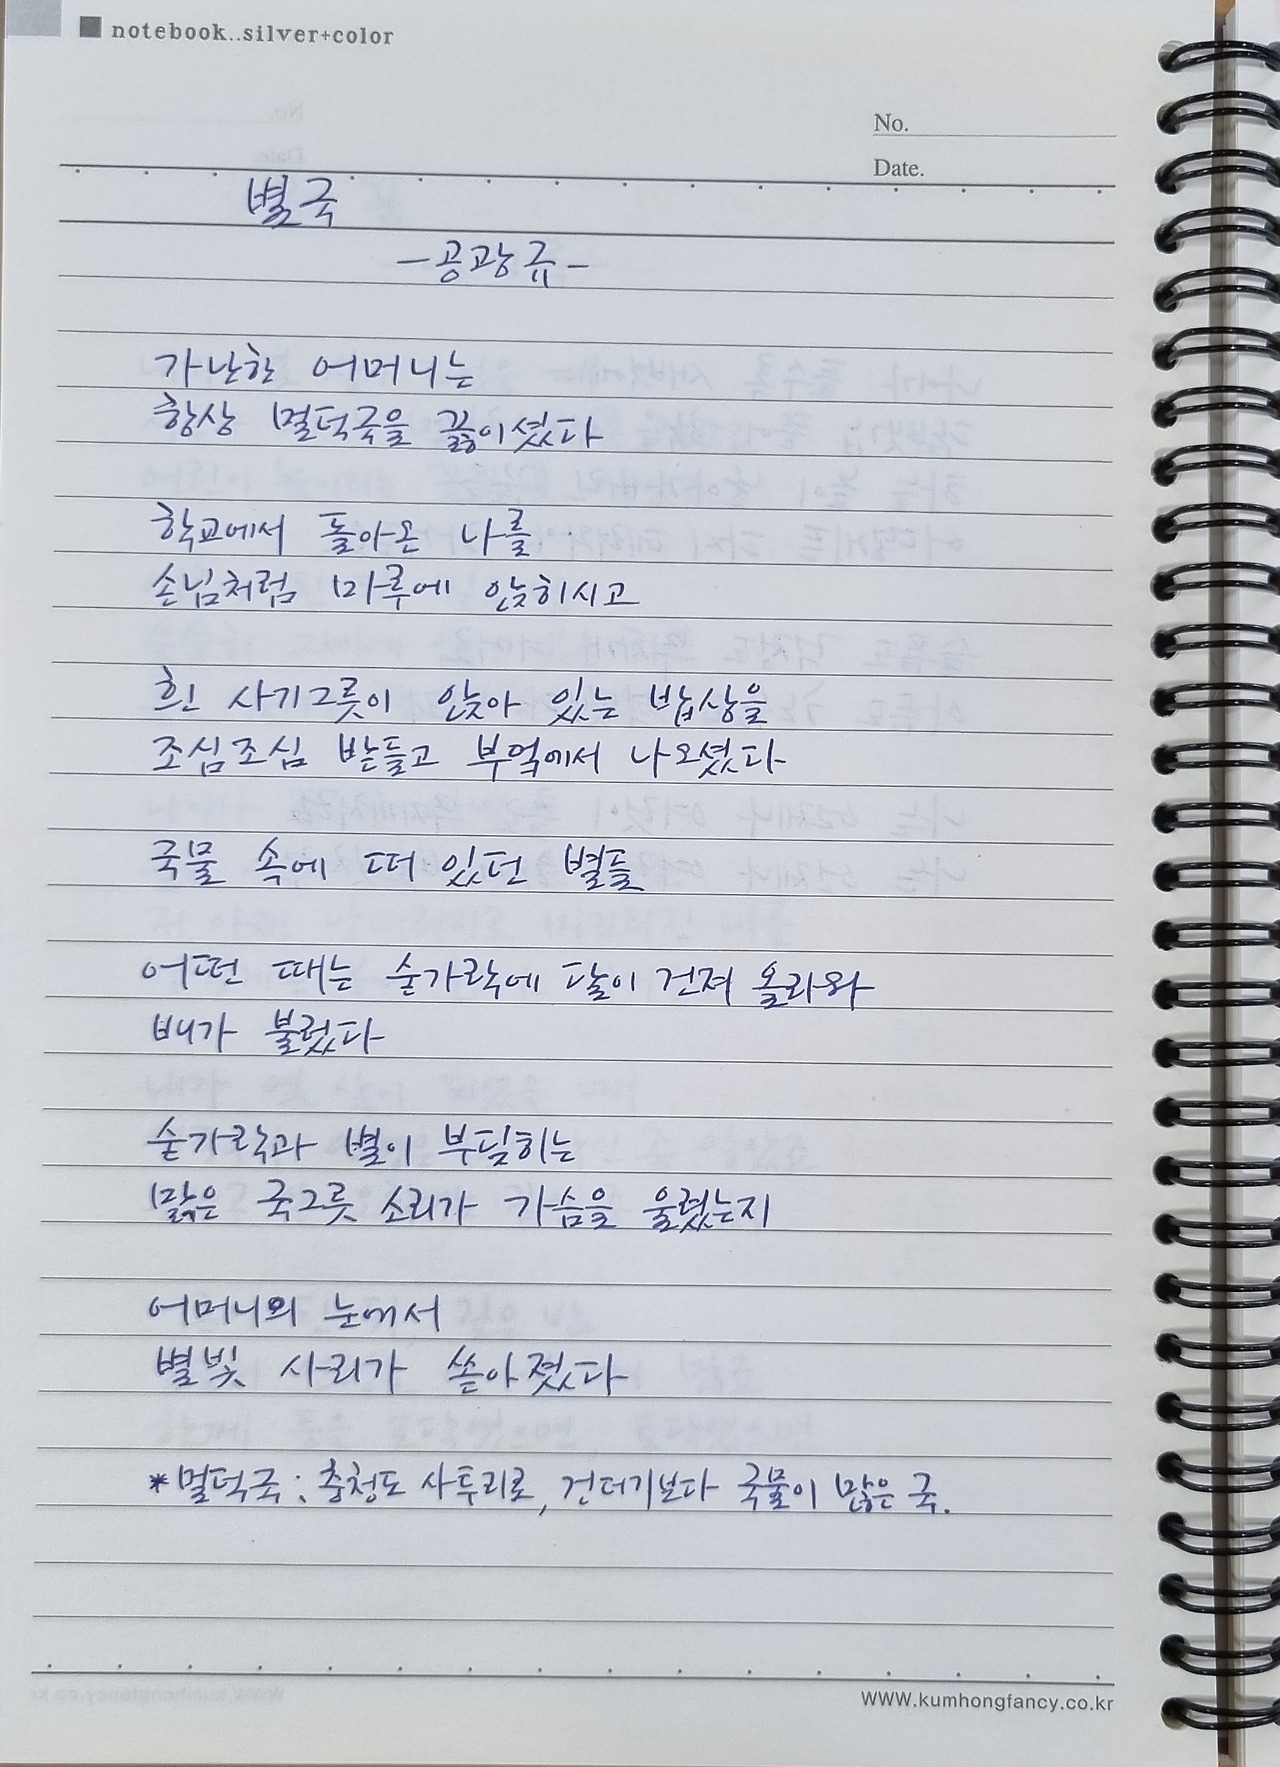 notebook..silver+color
No.
Date.
별국
-공광규-
가난한 어머니는
항상 멀덕국을 끓이셨다
학교에서 돌아온 나를
손님처럼 마루에 앉히시고
흰 사기그릇이 앉아 있는 밥상을
조심조심 받들고 부엌에서 나오셨다
국물 속에 떠 있던 별들
어떤 때는 숟가락에 달이 건져 올라와
배가 불렀다
숟가락과 별이 부딪히는
맑은 국그릇 소리가 가슴을 울렸는지
어머니의 눈에서
별빛 사리가 쏟아졌다
*멀덕국 : 충청도 사투리로, 건더기보다 국물이 많은 국.
WWW.kumhongfancy.co.kr